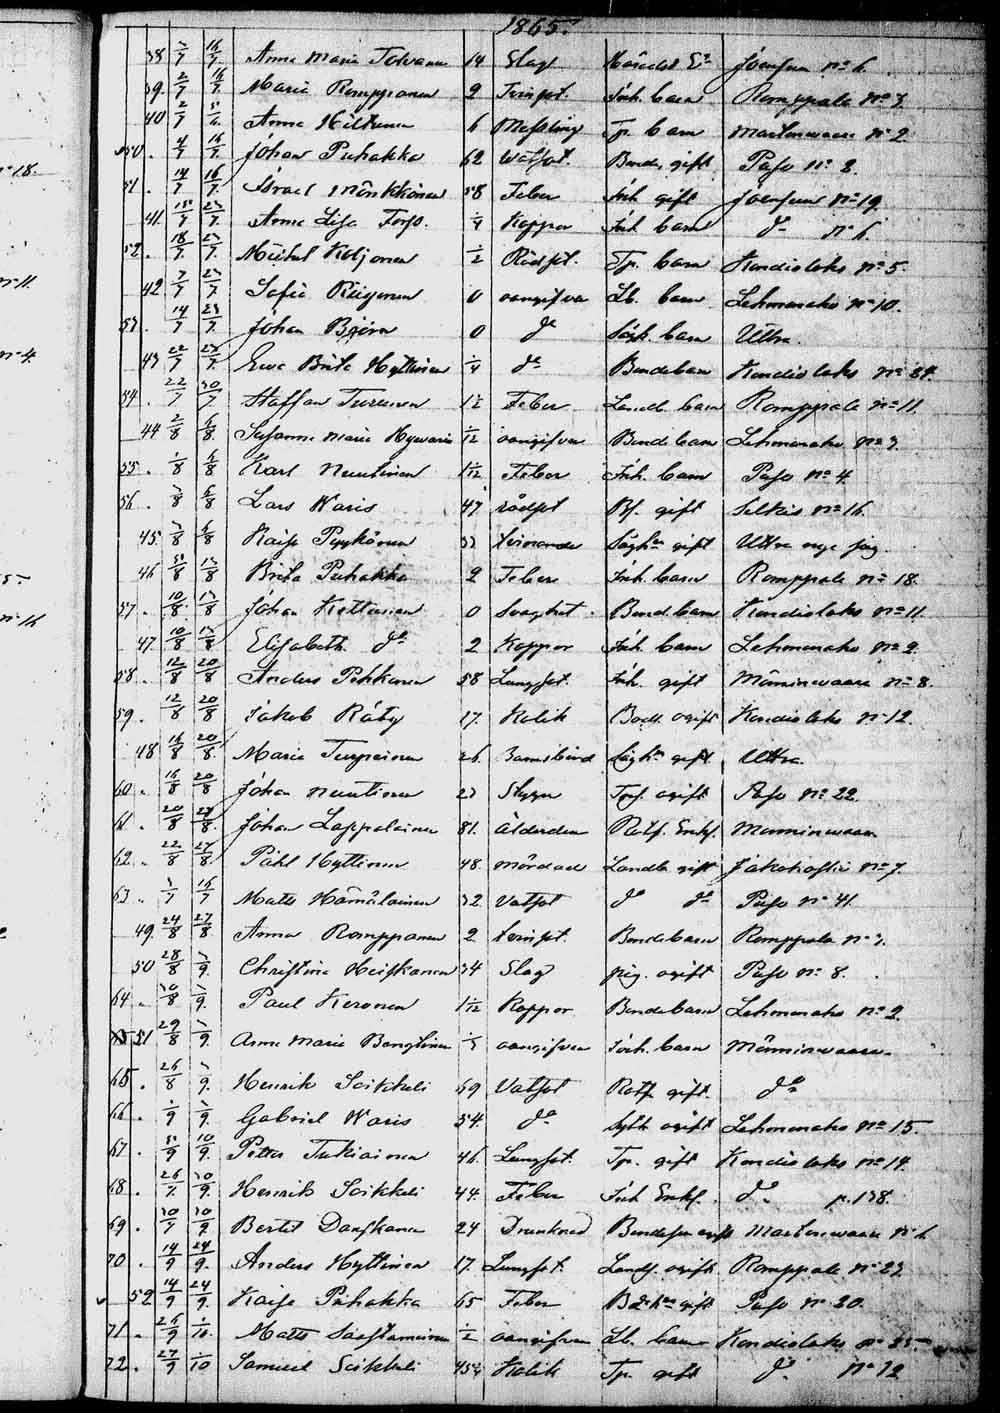 1865.
38 3/7 16/7 Anna Maria Tolvanen 14 Slag Joensuu no 6.
39. 2/7 16/7 Maria Romppanen 2 Tvinsot. Inh. barn Romppala no 3.
40 2/7 Anna Hiltunen 6 Messling Tp. barn Martonvaara no 2.
no 18. 50. 4/7 16/7 Johan Puhakka 62 Watsot. Bond. gift Paso no 2.
51. 14/7 16/7 Israel Mönkkönen 58 Feber Inh gift Joensuu no 19.
41. 15/7 23/7 Anna Lisa 1/4 Koppor Inh barn do No 6.
52. 18/7 23/7 Michel Koljonen 1/2 Rödsot. Tp. barn Kondiolaks no 5.
no 11. 42 7/7 23/7 Sofia 0 oangifven Lb. barn Lehmonaho no 10.
53. 14/7 23/7 Johan Björn 0 do barn Uttra.
no 4. 43 22/7 23/7 Ewa Brita Hyttinen 1/4 do Bondebarn Kondiolaks no 24.
54. 22/7 30/7 Staffan Turunen 1 1/2 Feber Landb. barn Romppala no 11.
44 2/8 6/8 Susanna Maria Hyvarin 1/12 oangifven Bondebarn Lehmonaho no 3.
55. 1/8 6/8 Karl Nuutinen 1 1/12 Feber Inh. barn Paso no 4.
56. 3/8 6/8 Lars Waris 47 rödsot gift Selkie no 16.
45 3/8 6/8 Kaisa Pyykönen 33 tvinande gift Uttra nya såg.
46 5/8 13/8 Brita Puhakka 2 Feber Inh. barn Romppala no 18.
no 16 57. 10/8 13/8 Johan Kettunen 0 Svaghet Bond. barn Kondiolaks no 11.
47 10/8 13/8 Elisabeth do 2 Koppor Inh. barn Lehmonaho no 2.
58. 12/8 20/8 Anders Pehkonen 58 Lungsot. Inh. gift Mönninvaara no 8.
59. 12/8 20/8 Jakob Räty 17. Kolik ogift Kondiolaks no 12.
48 16/8 20/8 Maria Turpeinen 26. Barnsbörd gift Uttra.
60. 16/8 20/8 Johan Nuutinen 23 Styng ogift Paso no 22.
61. 20/8 27/8 Johan Lappalainen 81. Ålderdom Rotf. Enkl. Mönninvaara
62. 22/8 27/8 Påhl Hyttinen 48. mördad Landb. gift Jakokoski no 7.
63. 3/7 16/7 Matts Hämäläinen 32 Vatsot do do Paso no 41.
49. 24/8 27/8 Anna Romppanen 2 tvinsot. Bondebarn Romppala no 3.
50 28/8 3/9. Christina Heiskanen 34 Slag pig. ogift Paso no 8.
64. 30/8 3/9. Paul Keronen 1 1/12 Koppor Bondebarn Lehmonaho no 2.
51 29/8 3/9. Anna Maria Bengtinen 1/3 oangifven Inh. barn Mönninvaara.
65. 26/8 3/9. Henrik Soikkeli 69 Vatsot Rotf gift. do
66. 1/9 3/9. Gabriel Waris 54. do ogift Lehmonaho no 15.
67. 5/9 10/9. Petter Tukiainen 46. Lungsot. Tp. gift Kondiolaks no 14.
68. 26/7 30/9. Henrik Soikkeli 44. Feber Inh Enkl. do p. 138.
69. 30/7 30/9. Bertil Danskanen 24 Drunknad Bondeson ogift Martonvaara no 6
70. 14/9 24/9. Anders Hyttinen 17. Lungsot. ogift Romppala no 23.
52 14/9 24/9. Kaisa Puhakka 65 Feber gift Paso no 20.
71. 26/9 1/10. Matts Saastamoinen 1/2 oangifven Lb. barn Kondiolaks no 25
72. 27/9 1/10 Samuel Soikkeli 45 Kolik Tp. gift do No 12